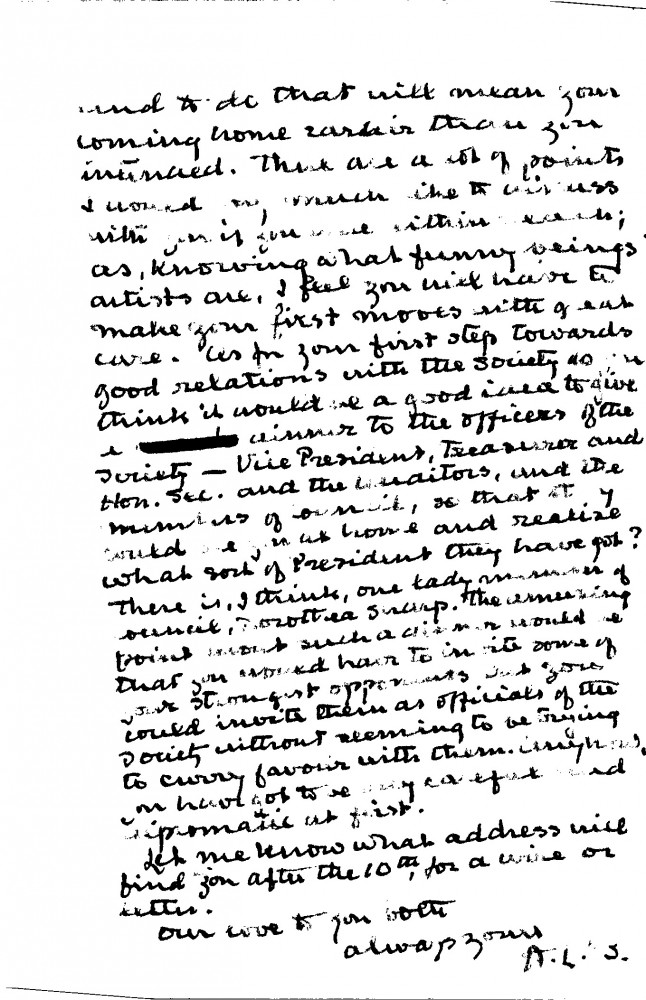 and to do that will mean your
coming home earlier than you
intended. There are a lot of points
I would very much like to discuss
with you if you were within reach;
as, knowing what funny beings
artists are, I feel you will have to
make your first moves with great
care. As for your first step towards
good relations with the Society do you
think it would be a good idea to give
a dinner to the officers of the
Society — Vice President, Treasurer and
Hon. Sec. and the Auditors, and the
members of Council, so that they
could see you at home and realize
what sort of President they have got?
There is, I think, one lady member of
Council, Dorothea Sharp. The amusing
point about such a dinner would be
that you would have to invite some of
your strongest opponents but you
could invite them as officials of the
Society without seeming to be trying
to curry favour with them. Anyhow,
you have got to be very careful and
diplomatic at first.
Let me know what address will
find you after the 10th, for a wire or
letter.
Our love to you both
always yours
A. L. S.